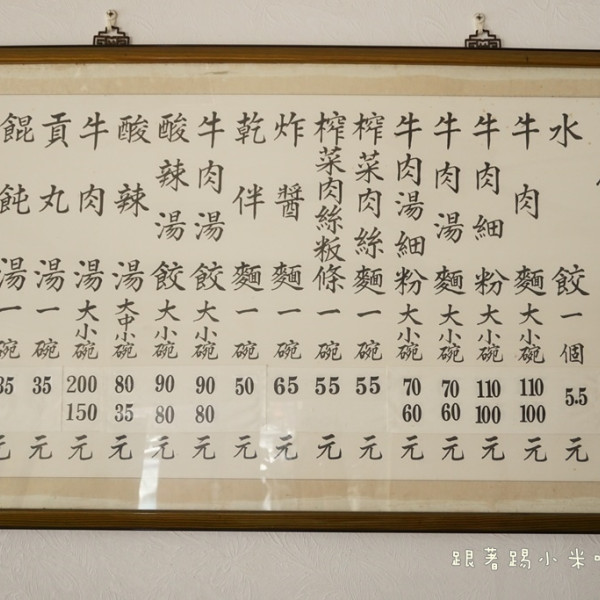 水餃一個 5.5 元
牛肉麵大小碗 110 100 元
牛肉細粉大小碗 110 100 元
牛肉湯麵大小碗 70 60 元
牛肉湯細粉大小碗 70 60 元
榨菜肉絲麵一碗 55 元
榨菜肉絲粄條一碗 55 元
炸醬麵一碗 65 元
乾伴麵一碗 50 元
牛肉湯餃大小碗 90 80 元
酸辣湯餃大小碗 90 80 元
酸辣湯大中小碗 80 35 元
牛肉湯大小碗 200 150 元
貢丸湯一碗 35 元
餛飩湯一碗 35 元
跟著踢小米